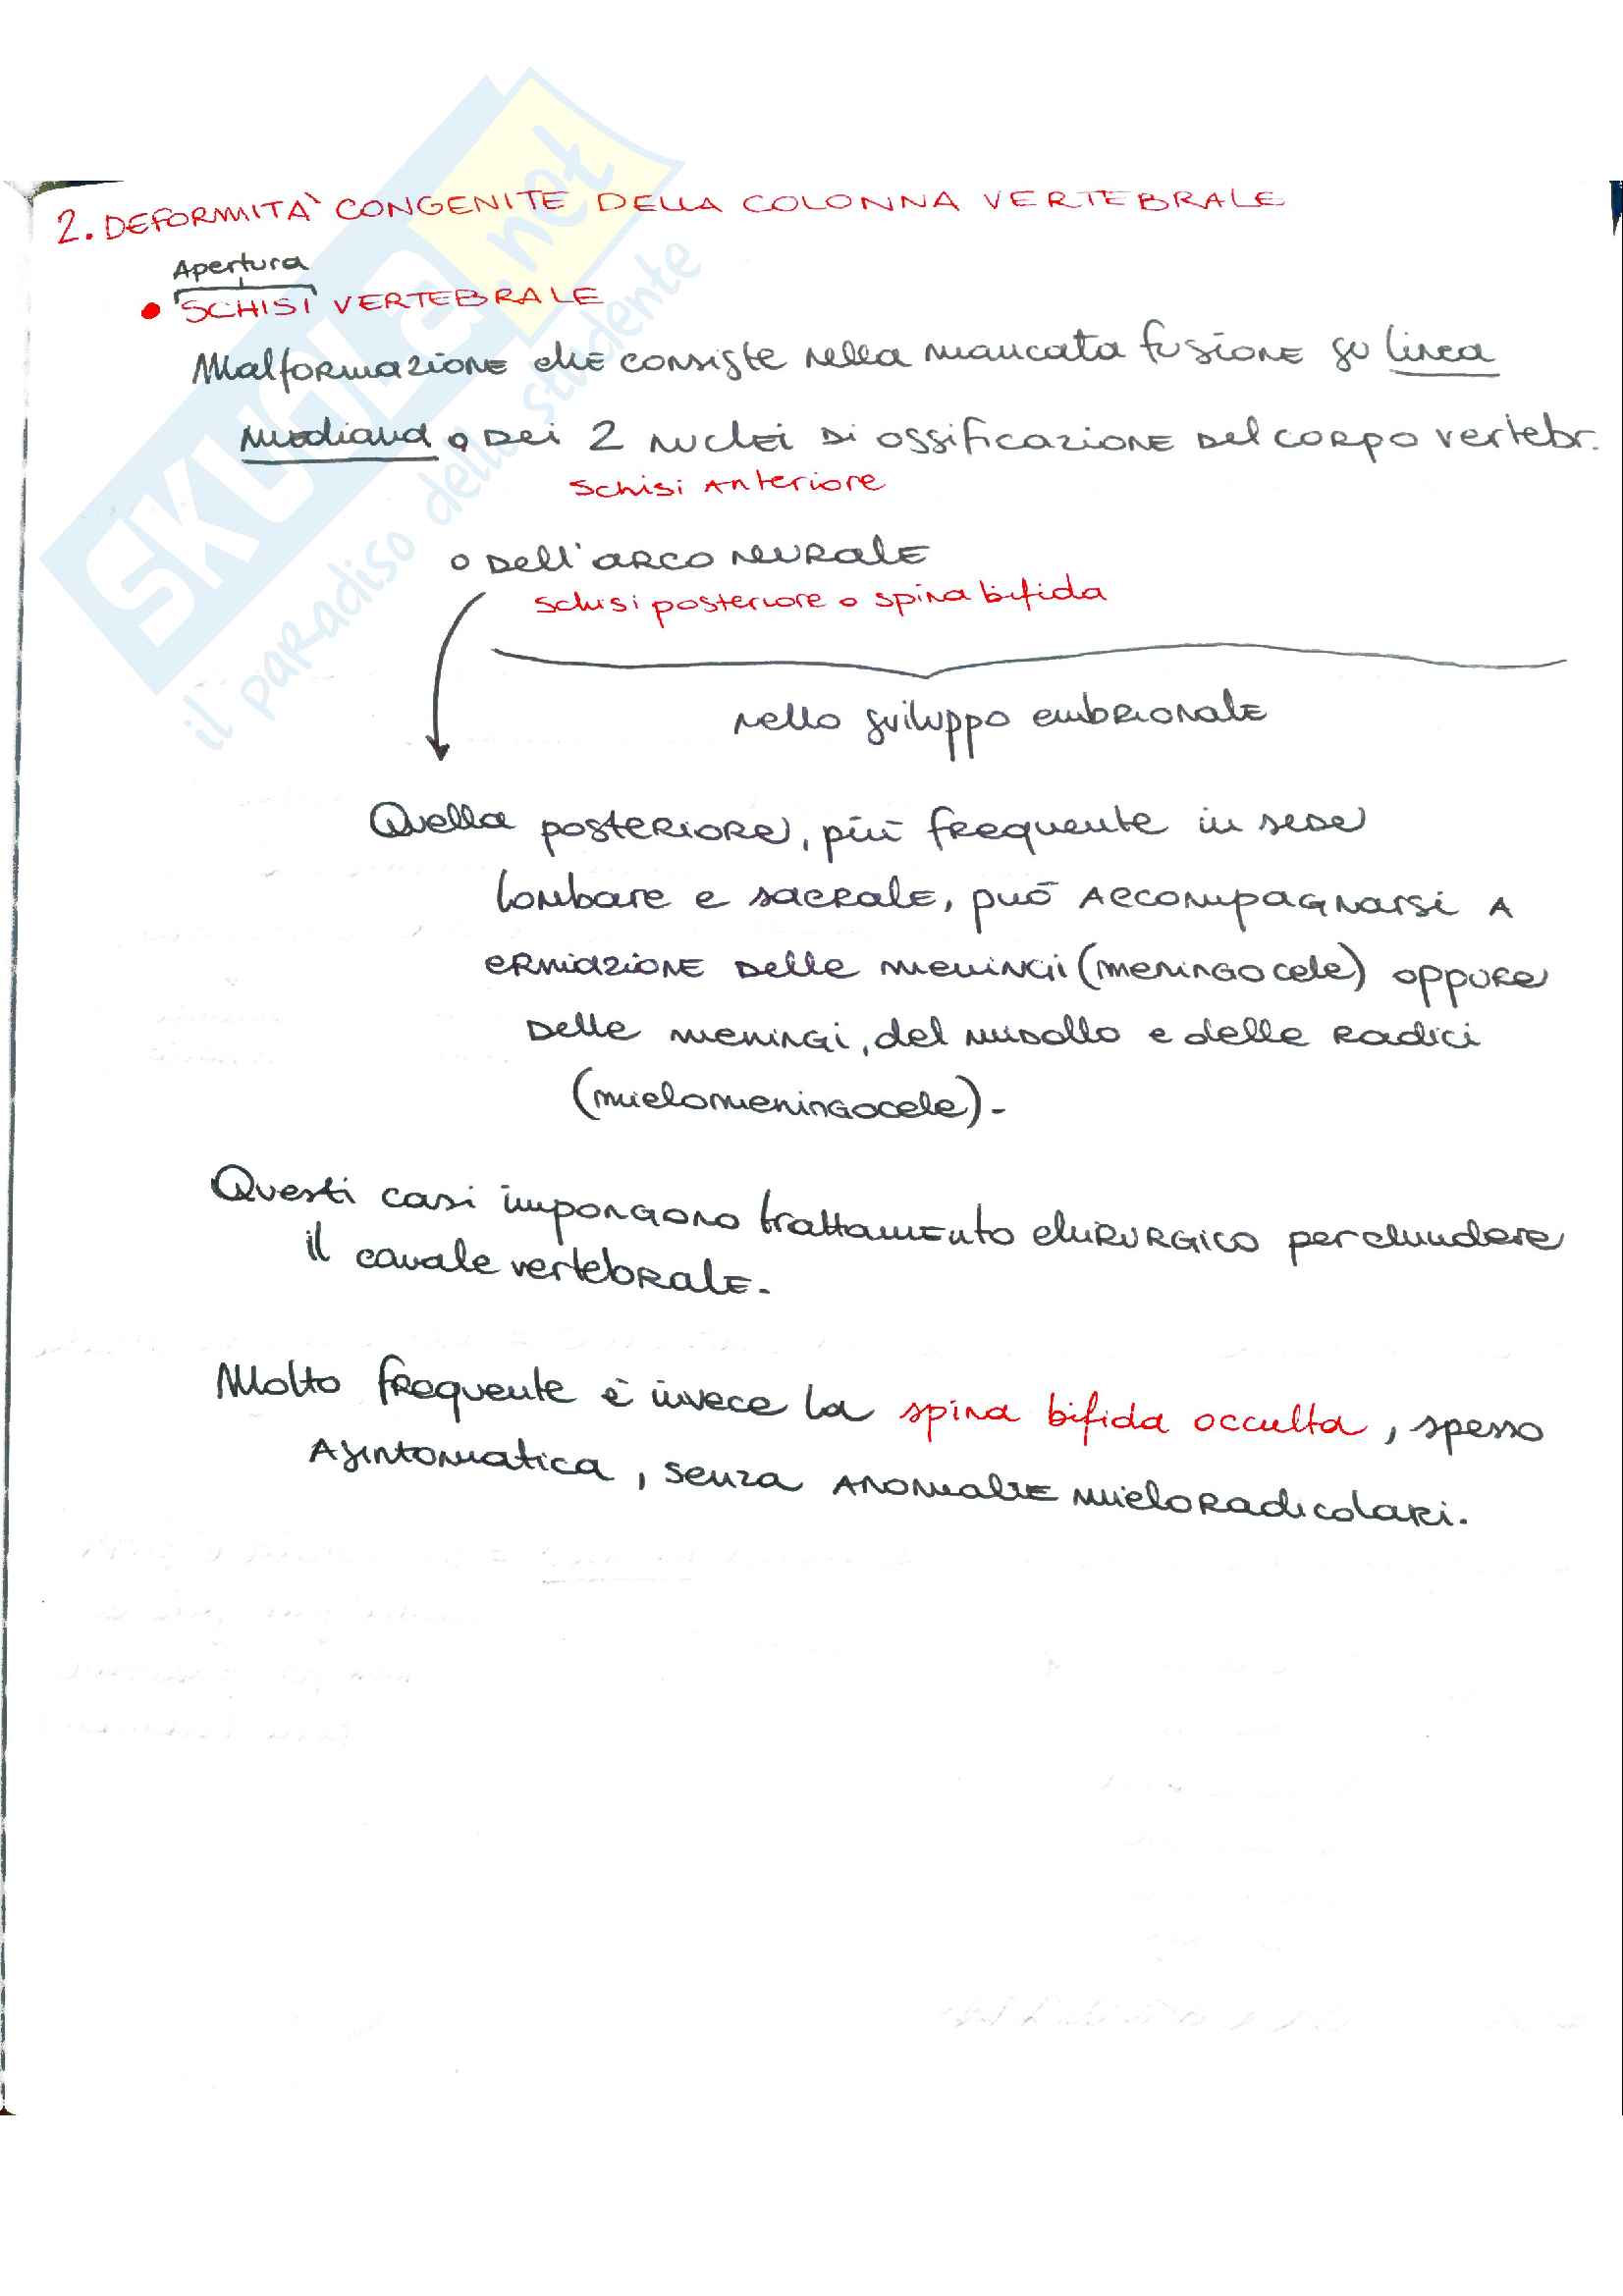 2. DEFORMITÀ CONGENITE DELLA COLONNA VERTEBRALE
Apertura
• SCHISI VERTEBRALE
Malformazione che consiste nella mancata fusione su linea
mediana o dei 2 nuclei di ossificazione del corpo vertebr.
schisi anteriore
o dell'arco neurale
schisi posteriore o spina bifida
nello sviluppo embrionale
Quella posteriore, più frequente in sede
lombare e sacrale, può accompagnarsi a
ermiazione delle meningi (meningocele) oppure
delle meningi, del midollo e delle radici
(mielomeningocele).
Questi casi impongono trattamento chirurgico per chiudere
il canale vertebrale.
Molto frequente è invece la spina bifida occulta, spesso
asintomatica, senza anomalie mieloradicolari.
SKUOLA.net
il paradiso dello studente